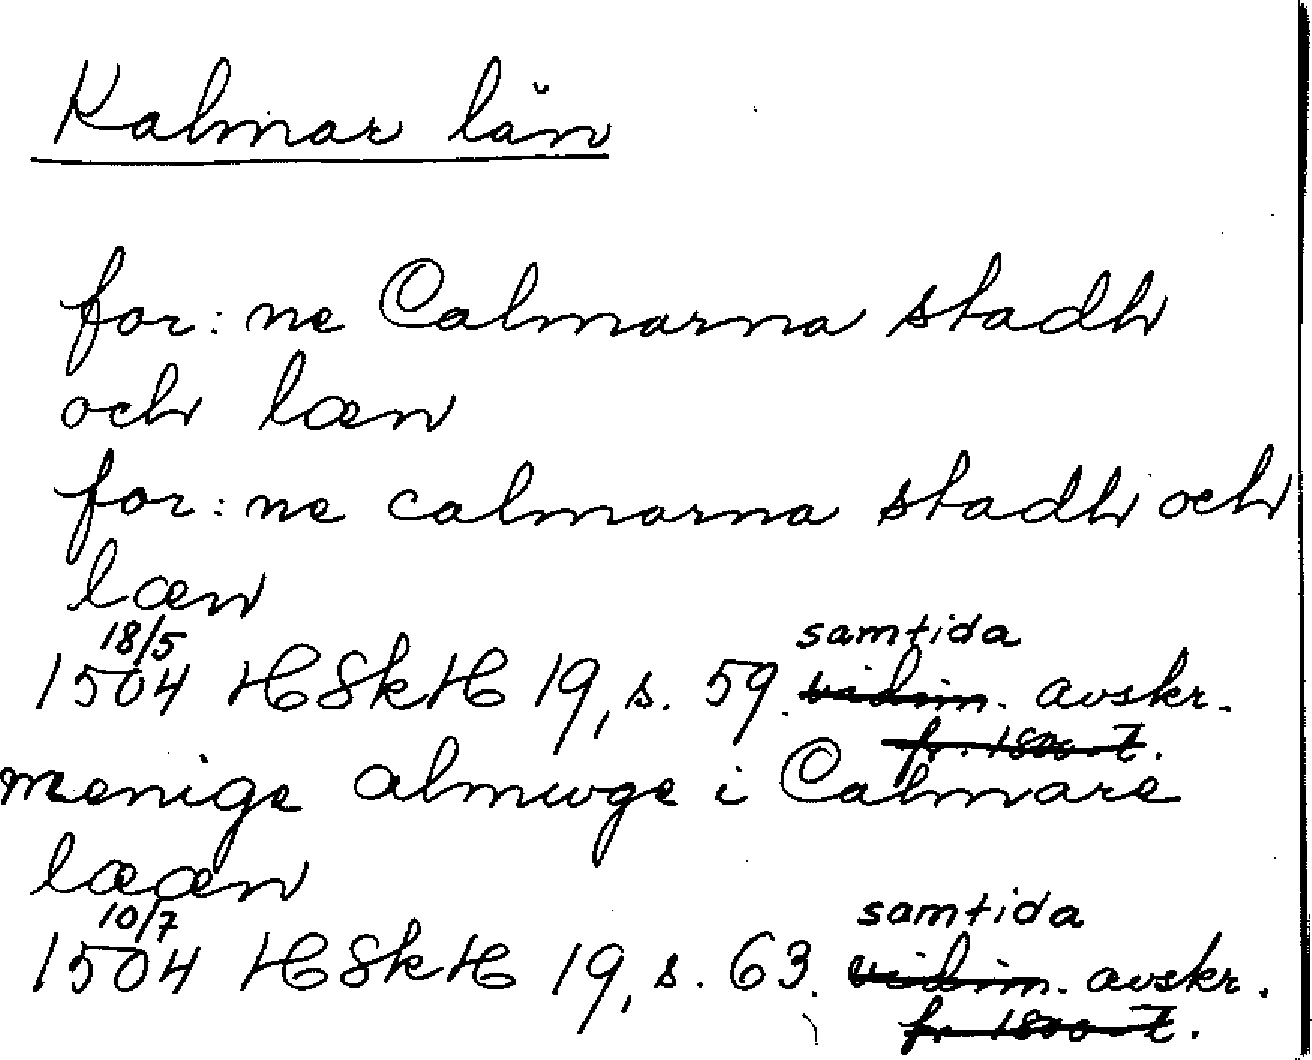 Kalmar län
for: ne Calmarna stadh
och læn
for: ne calmarna stadh och
læn
18/5 samtida
1504 HSkH 19, s. 59. vidim. avskr.
fr. 1800-t.
menige almwge i Calmare
lææn
10/7 samtida
1504 HSkH 19, s. 63. vidim. avskr.
fr 1800-t.